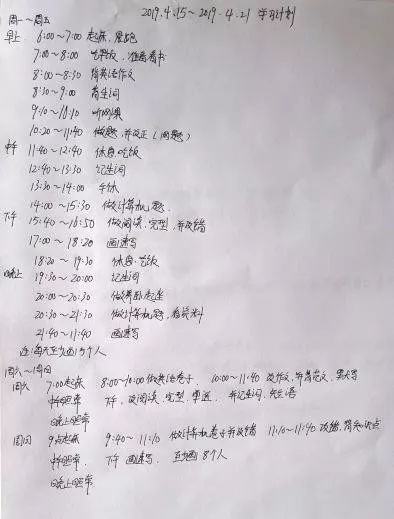 2019.4.15~2019.4.21 学习计划
周一~周五
早上 6:00~7:00 起床、晨跑
7:00~8:00 吃早饭、准备看书
8:00~8:30 背英语作文
8:30~9:00 背生词
9:10~10:10 听网课
10:20~11:40 做题,并改正(问题)
中午 11:40~12:40 休息吃饭
12:40~13:30 记生词
13:30~14:00 午休
14:00~15:30 做计算机题
下午 15:40~16:50 做阅读、完型、并改错
17:00~18:20 画速写
18:20~19:30 休息、吃饭
晚上 19:30~20:00 记生词
20:00~20:30 做仰卧起坐
20:30~21:30 做计算机题、看资料
21:40~11:40 画速写
注:每天至少画15个人
周六~周日
周六 7:00起床 8:00~10:00做英语卷子、10:00~11:40 改作文,并背范文,默写
中午照常 下午,改阅读、完型、单选 并记生词、短语
晚上照常
周日 9点起床 9:40~11:10 做计算机卷子并改错 11:10~11:40 改错,背知识点
中午照常、下午 画速写、至少画8个人
晚上照常